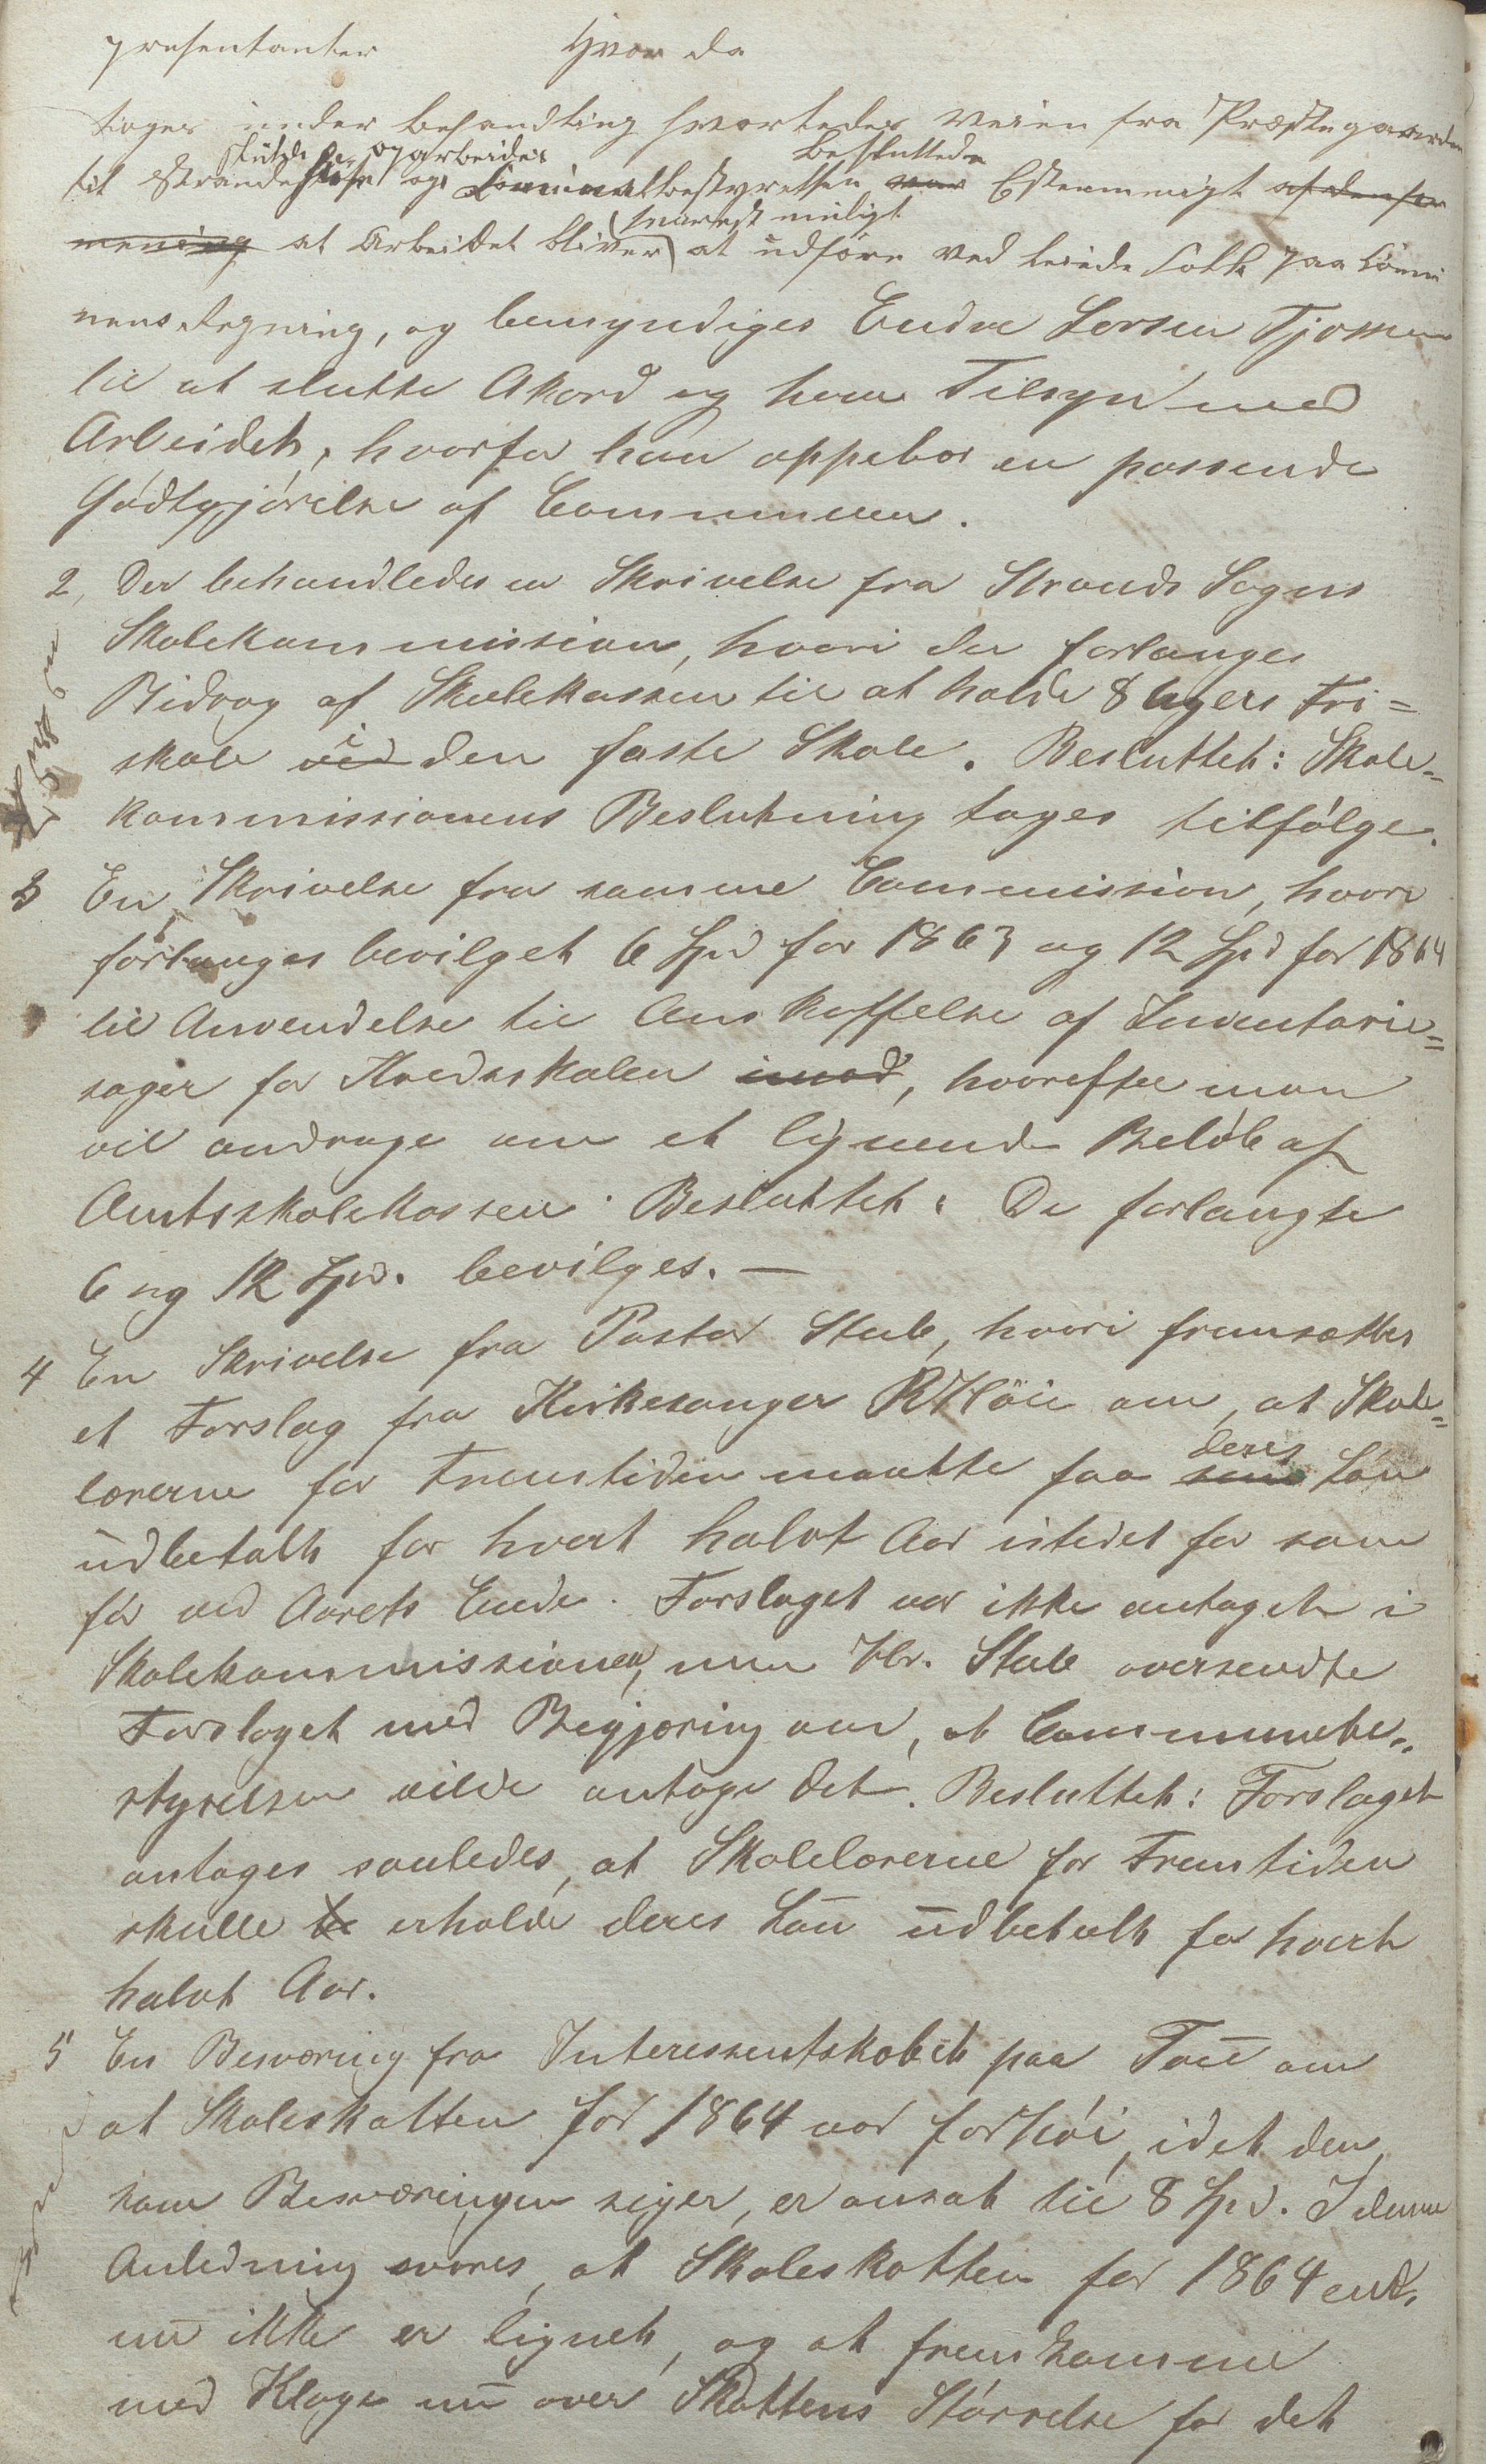 presentanter Hvor da
toges under behandling hvorledes Veien fra Præstegaarden
skulde oparbeides besluttede
til Strande og Comunalbestyrelsen var Estemmigt af den for
snarest muligt
mening at Arbeidet bliver at udføre ved leiede Folk paa Comu
nens Regning, og bemyndiges Endre Larsen Tjossem
til at slutte Akord og have Tilsyn med
Arbeidet, hvorfor han oppebær en passende
Godtgjörelse af Communen.
2, Der behandledes en Skrivelse fra Strands Sogns
Skolekommission, hvori der forlanges
Bidrag af Skolekassen til at holde 8 Ugers Fri=
skole ved i den faste Skole. Besluttet: Skole-
kommissionens Beslutning tages tilfølge.
3 En Skrivelse fra samme Commission, hvori
forlanges bevilget 6 Spd for 1863 og 12 Spd for 1864
til Anvendelse til Anskaffelse af Inventarie=
sager for Kredsskolen imod, hvorefter man
vil andrage om et lignende Beløb af
Amtsskolekassen. Besluttet: De forlangte
6 og 12 Spd. bevilges. —
4 En Skrivelse fra Pastor Stub, hvori fremsættes
et Forslag fra Kirkesanger R Höie om, at Skole=
deres
lærerne for Fremtiden maatte faa sine Løn
udbetalt for hvert halvt Aar istedet for som
før ved Aarets Ende. Forslaget var ikke antaget i
Skolekommissionen, men Hr. Stub oversendte
Forslaget med Begjæring om, at Communebe=
styrelsen vilde antage det. Besluttet: Forslaget
antages saaledes, at Skolelærerne for Fremtiden
skulle erholde deres Løn udbetalt for hvert
halvt Aar.
5 En Besværing fra Interessentskabet paa Tou om
at Skoleskatten for 1864 var for høi, idet den,
som Besværingen siger, er ansat til 8 Spd. I denne
Anledning svares, at Skoleskatten for 1864 end,
nu ikke er lignet, og at fremkomme
med Klage nu over Skattens Størrelse for det